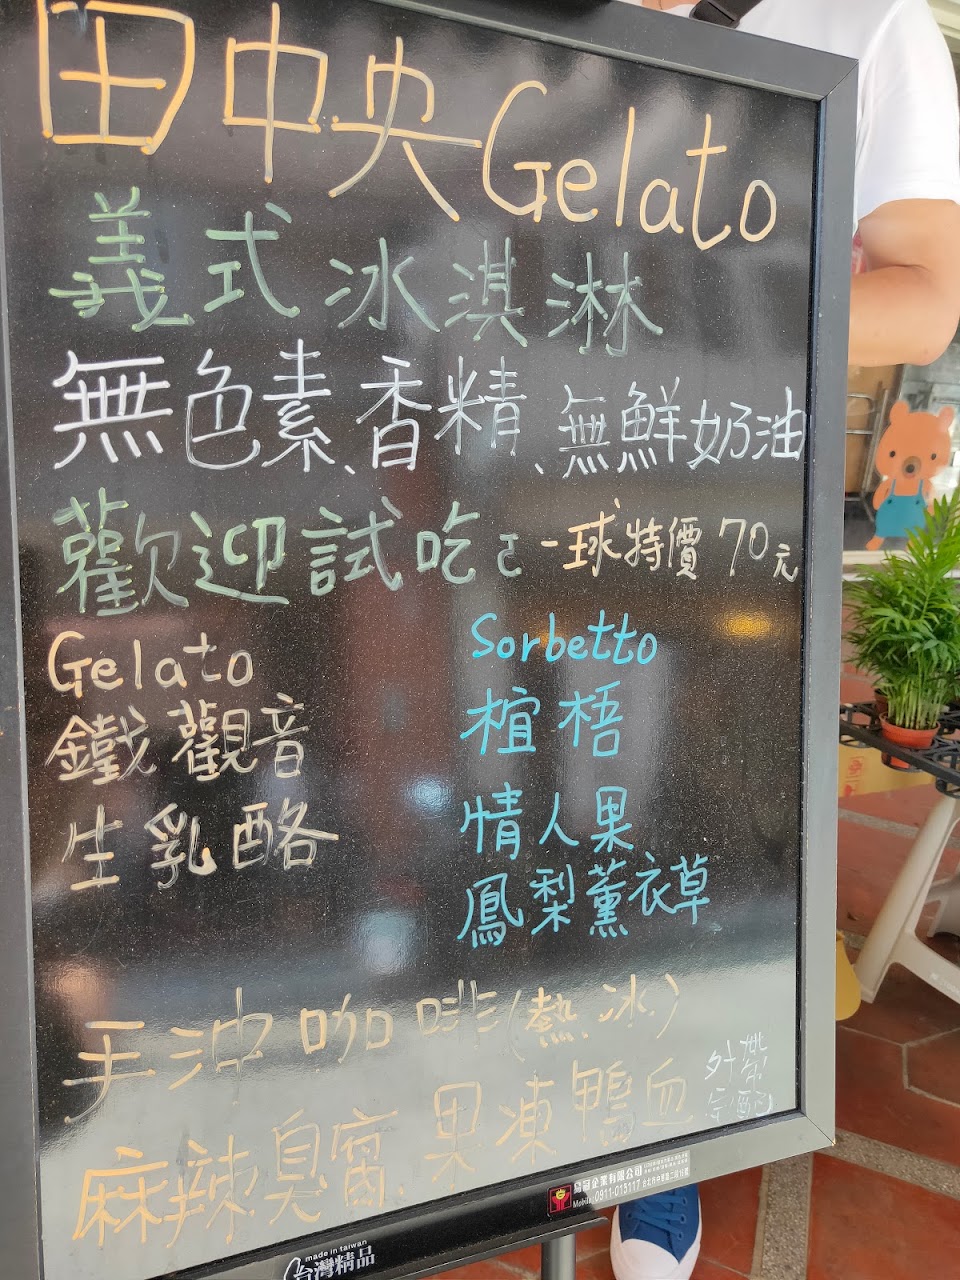 田中央Gelato
義式冰淇淋
無色素、香精、無鮮奶油
歡迎試吃 一球特價70元
Gelato
鐵觀音
生乳酪
Sorbetto
楦梧
情人果
鳳梨薰衣草
手沖咖啡(熱.冰)
麻辣臭腐.果凍鴨血
外帶
宅配
企業有限公司
Mobile 0911-015117
made in taiwan
台灣精品